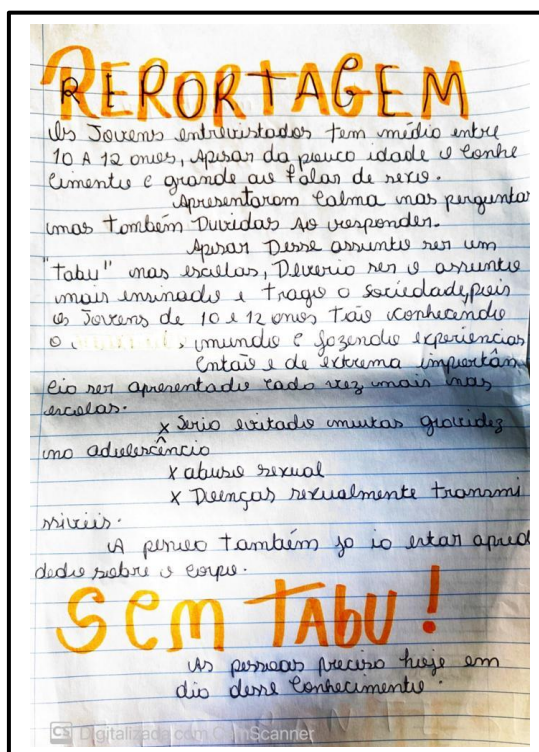 RERORTAGEM
Os Jovens entrevistados tem média entre
10 A 12 anos, Apisar da pouco idade o Conhe
cimento e grande ao falar de sexo.
Apresentaram Calma nas perguntar
mas também Duvidas ao responder.
Apisar Desse assunto ser um
"tabu" nas escolas, Deveria ser o assunto
mais ensinado e trago a sociedade, pois
os Jovens de 10 e 12 anos tão conhecendo
o mundo e fazendo experiencias
Então e de extrema importân
cia ser apresentado cado vez mais nas
escolas.
x Seria evitado muitas gravidez
na adolescência
x abuso sexual
x Doenças sexualmente transmi
ssiveis.
A pessoa também ja ia estar apred
dedo sobre o corpo.
SEM TAbU!
As pessoas preciso hoje em
dia desse Conhecimento.
CS Digitalizada com CamScanner